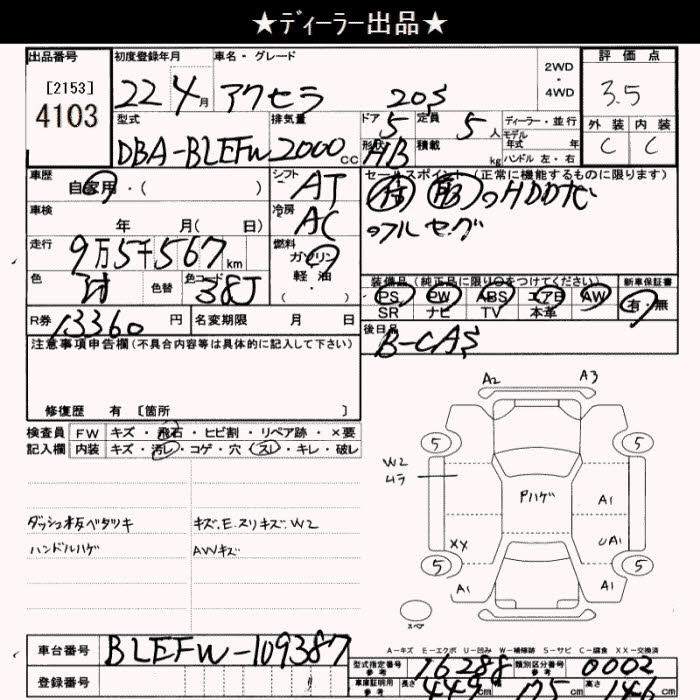 ★ディーラー出品★
出品番号 初度登録年月 車名・グレード 2WD・4WD 評価点
[2153] 22 4月 アクセラ 20S 3.5
4103
型式 排気量 ドア 5 定員 5人 ディーラー・並行 外装 内装
DBA-BLEFW 2000cc 形状 HB 積載 kg モデル年式 年 C C
ハンドル 左・右
車歴 自家用・( ) シフト AT セールスポイント(正常に機能するものに限ります)
車検 年 月( 日) 冷房 AC HDDナビ
フルセグ
走行 9万5千567km 燃料 ガソリン 軽油・( )
装備品(純正品に限り○をつけてください) 新車保証書
色 色替 色コード 38J PS PW ABS エアB AW 有・無
SR ナビ TV 本革
R券 13360円 名変期限 月 日 後日品 B-CAS
注意事項申告欄(不具合内容等は具体的に記入して下さい)
修復歴 有 [箇所 ]
検査員 FW キズ・飛石・ヒビ割・リペア跡・×要
記入欄 内装 キズ・汚レ・コゲ・穴・スレ・キレ・破レ
A2 A3
5 5
W2
ムラ
Pハゲ A1
ダッシュ板ベタツキ キズ.E.スリキズ.W2
ハンドルハゲ AWキズ
XX UA1
5 5
A1 A1
スペア
A-キズ E-エクボ U-凹み W-補修跡 S-サビ C-腐食 XX-交換済
車台番号 BLEFW-109387
型式指定番号 参考 16288 類別区分番号 参考 0002
登録番号
車庫証明用 参考 長さ 449cm 幅 175cm 高さ 146cm